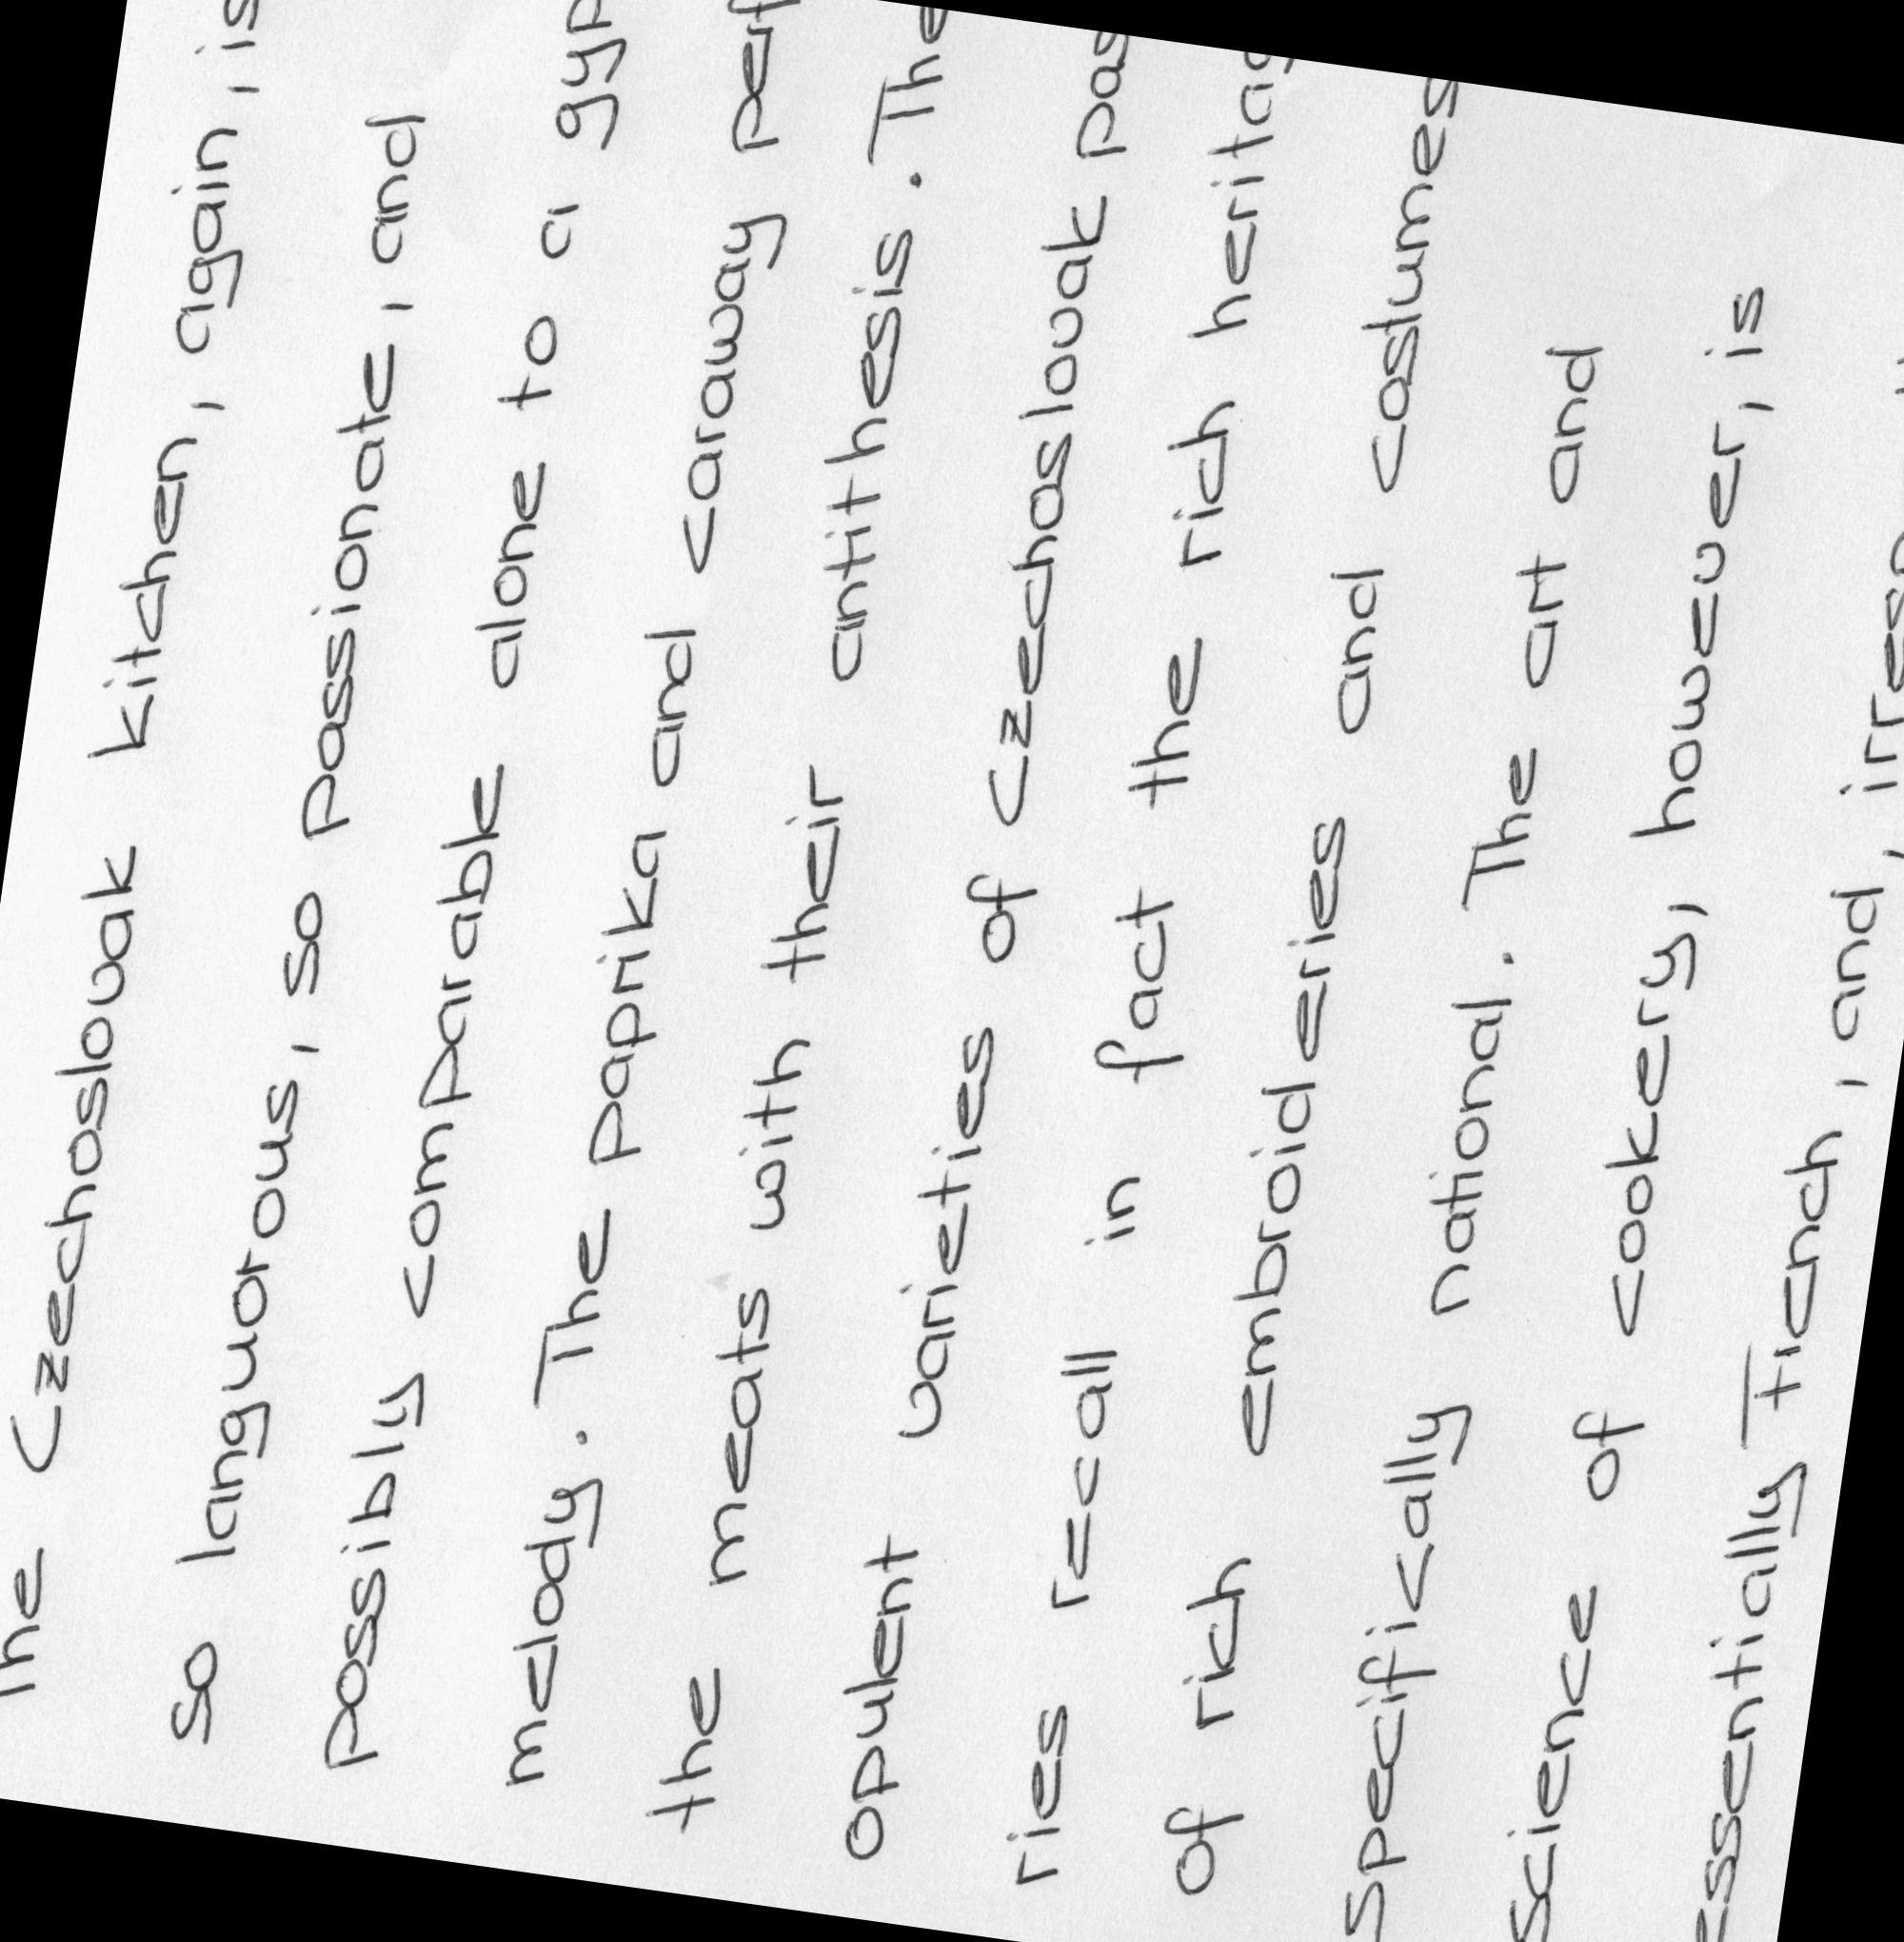 The Czechoslovak kitchen, again, is
so languorous, so passionate, and
possibly comparable alone to a
melody. The paprika and caraway
the meats with their antithesis. The
opulent varieties of Czechoslovak
ries recall in fact the rich
of rich embroideries and costumes
specifically national. The art and
science of cookery, however, is
essentially French, and,